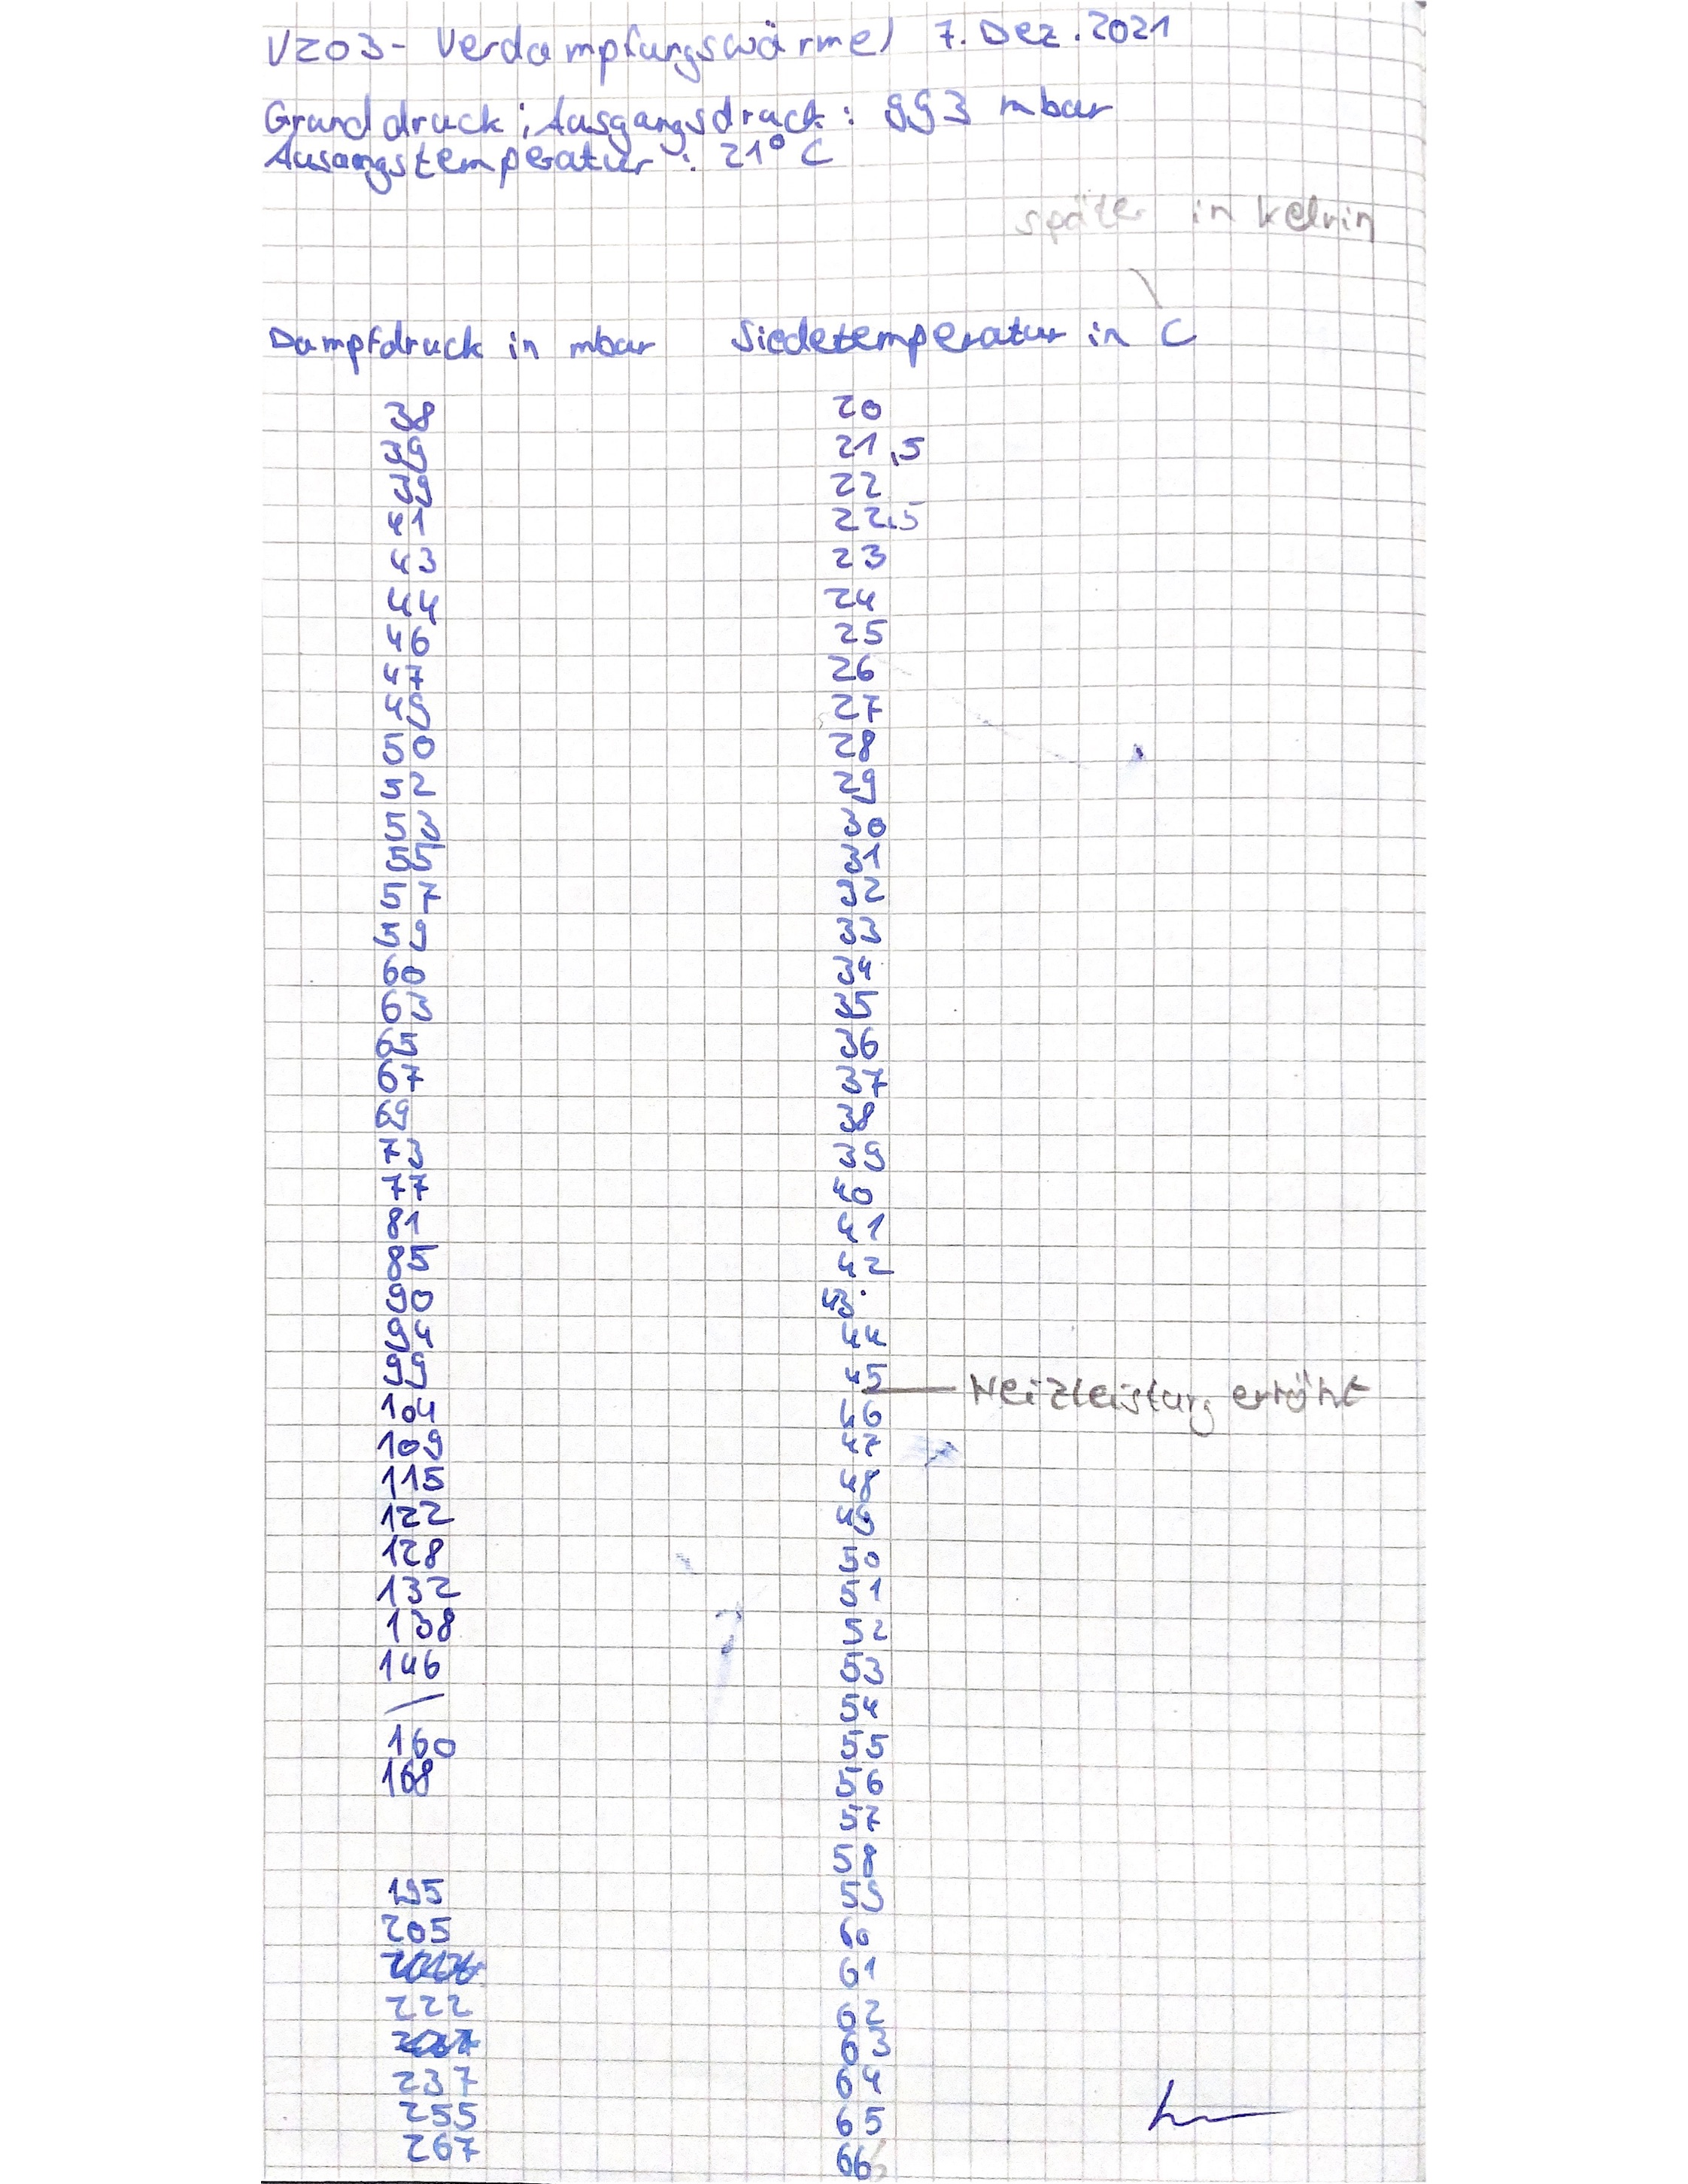 V203 - Verdampfungswärme) 7. Dez. 2021
Grunddruck ; Ausgangsdruck : 993 mbar
Ausgangstemperatur : 21° C
später in kelvin
Dampfdruck in mbar Siedetemperatur in C
38 20
39 21,5
39 22
41 22,5
43 23
44 24
46 25
47 26
49 27
50 28
52 29
53 30
55 31
57 32
59 33
60 34
63 35
65 36
67 37
69 38
73 39
77 40
81 41
85 42
90 43
94 44
99 45 Heizleistung erhöht
104 46
109 47
115 48
122 49
128 50
132 51
138 52
146 53
/ 54
160 55
168 56
57
58
195 59
205 60
61
222 62
63
237 64
255 65
267 66